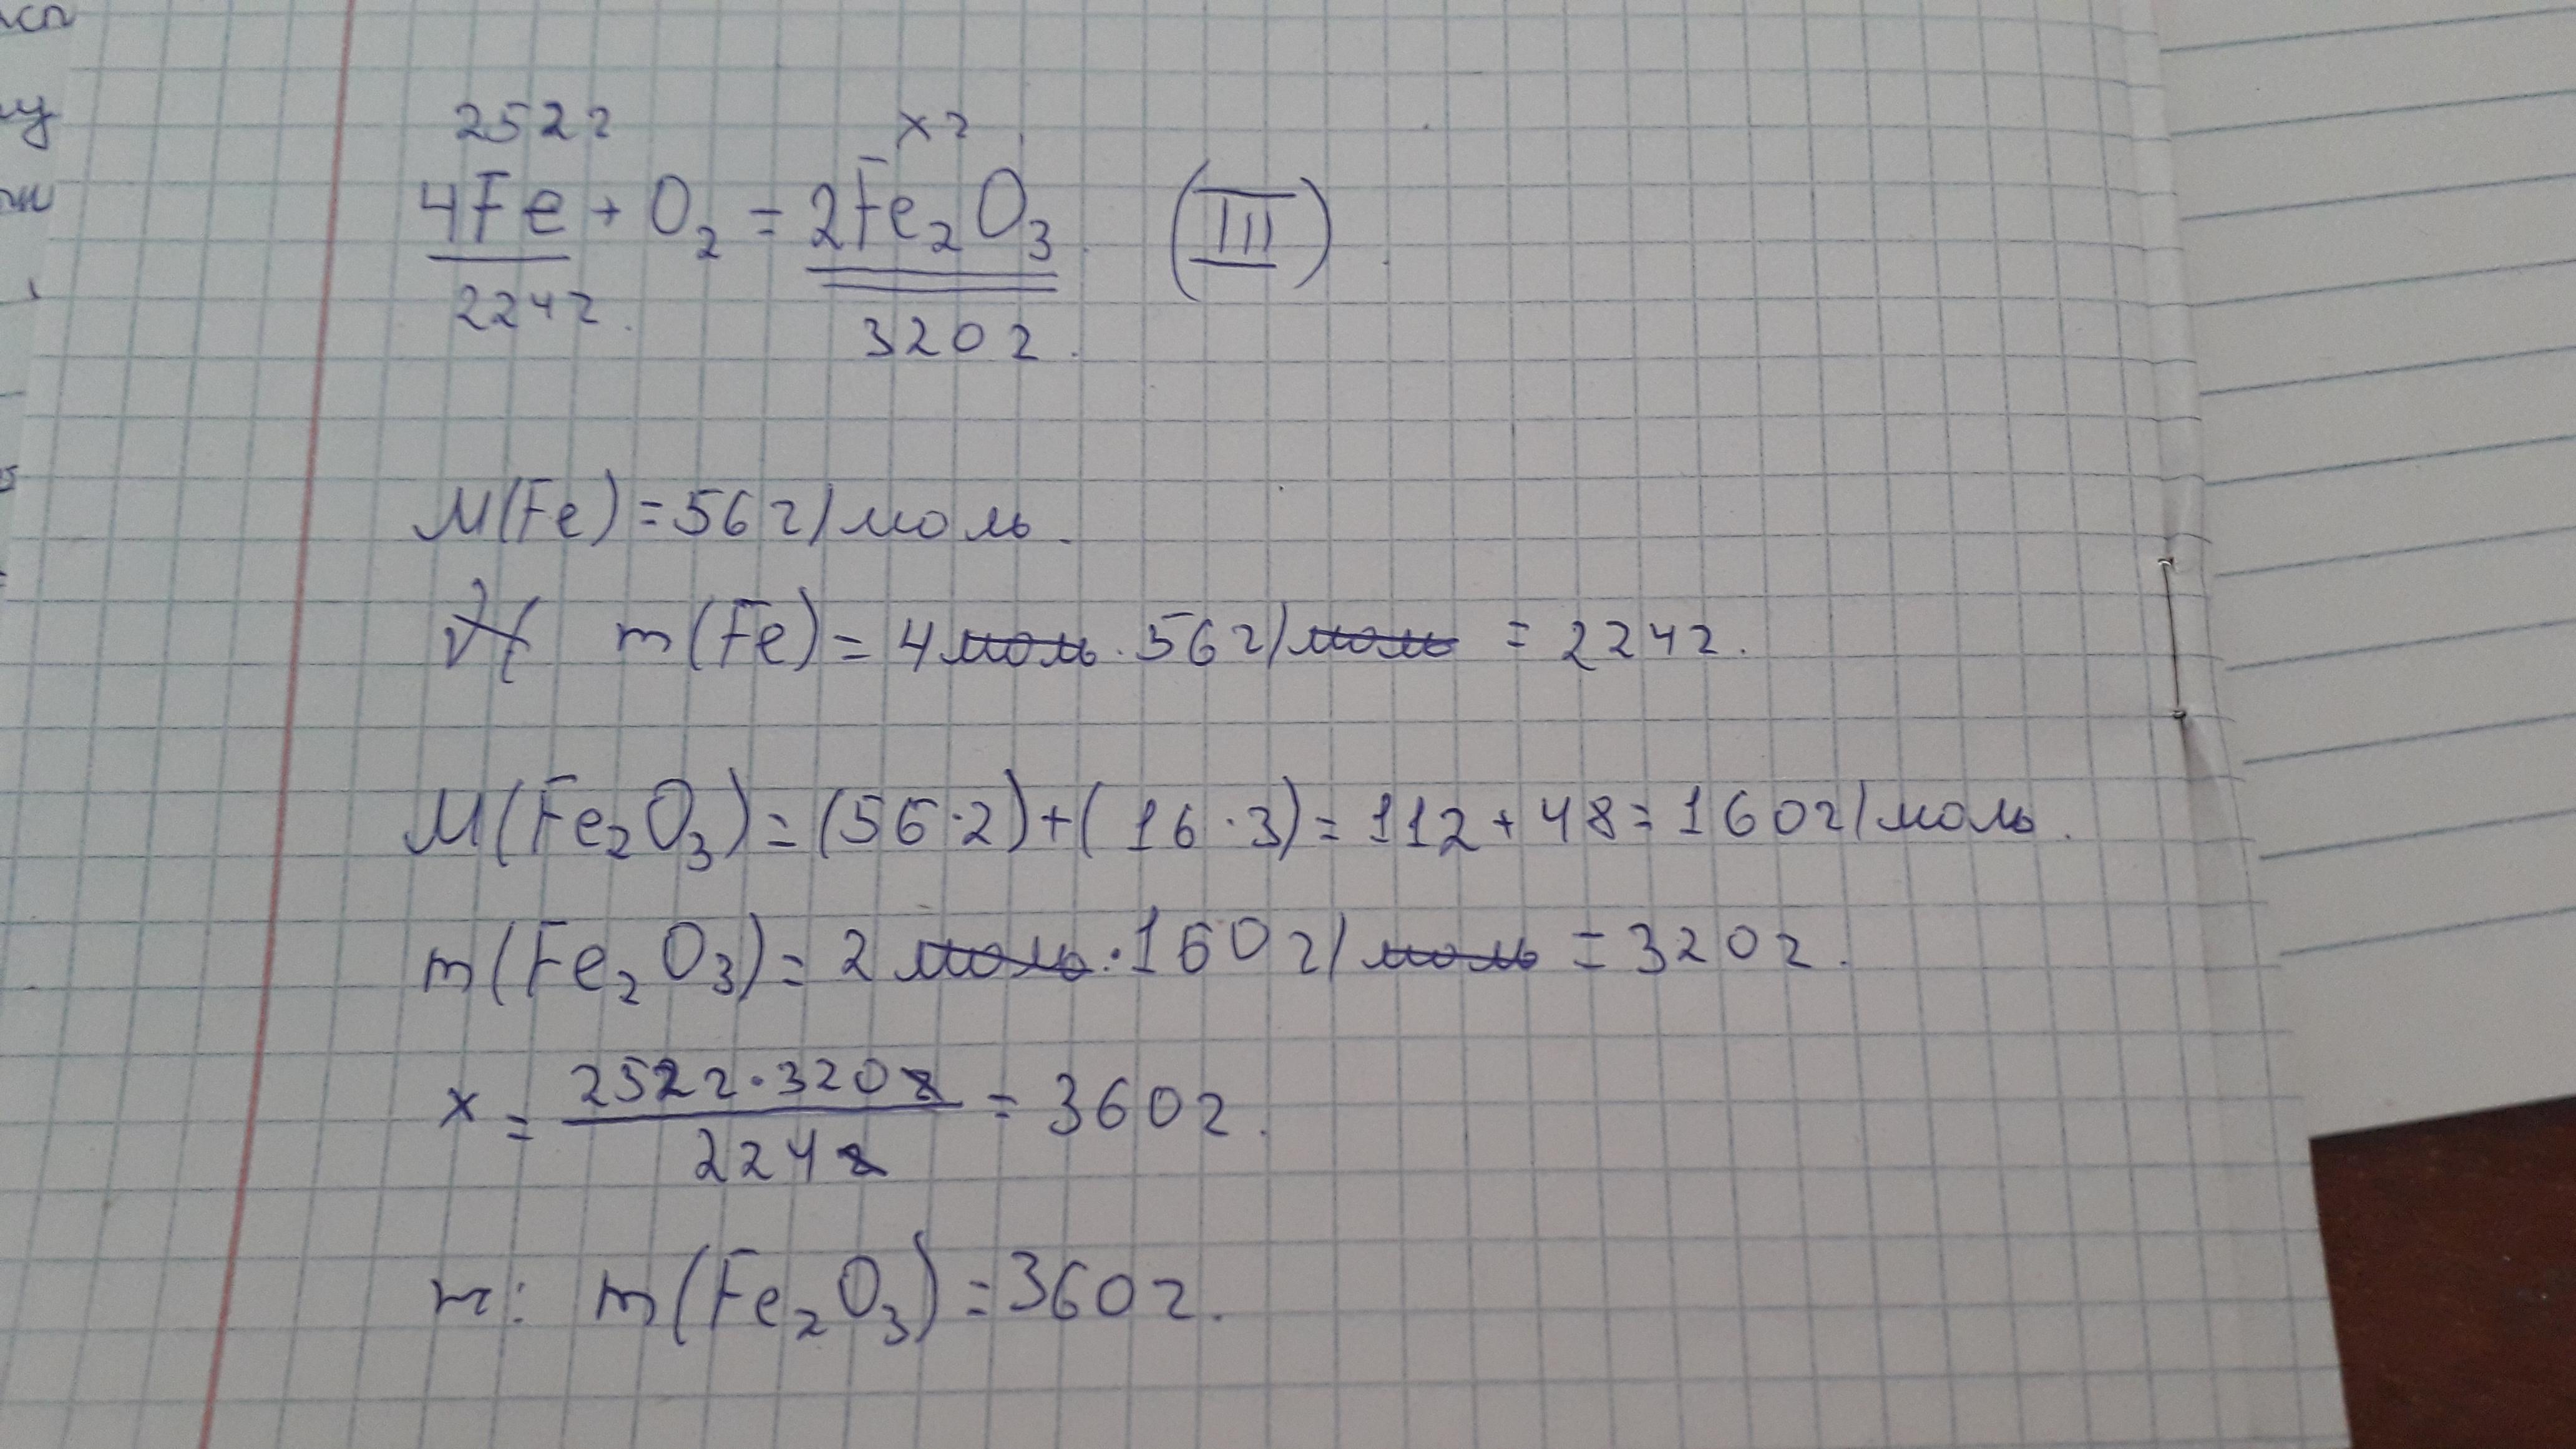 252г xг
4Fe + O₂ = 2Fe₂O₃. (III)
224г. 320г.
M(Fe) = 56г/моль.
m(Fe) = 4моль · 56г/моль = 224г.
M(Fe₂O₃) = (56·2)+(16·3) = 112+48 = 160г/моль.
m(Fe₂O₃) = 2моль · 160г/моль = 320г.
x = 252г·320г / 224г = 360г.
m: m(Fe₂O₃) = 360г.